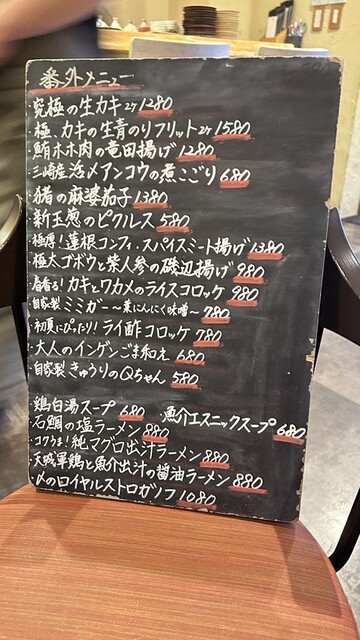 番外メニュー
・究極の生カキ 2ケ 1280
・極、カキの生青のりフリット 2ケ 1580
・鮪ホホ肉の竜田揚げ 1280
・三崎産活〆アンコウの煮こごり 680
・猪の麻婆茄子 1380
・新玉葱のピクルス 580
・極厚!蓮根コンフィ・スパイスミート揚げ 1380
・極太ゴボウと紫人参の磯辺揚げ 980
・春香る!カキとワカメのライスコロッケ 980
・自家製ミミガー〜葉にんにく味噌〜 780
・初夏にぴったり!ライ酢コロッケ 780
・大人のインゲンごま和え 680
・自家製きゅうりのQちゃん 580
鶏白湯スープ 680 魚介エスニックスープ 680
・石鯛の塩ラーメン 880
・コクうま!純マグロ出汁ラーメン 880
・天城軍鶏と魚介出汁の醤油ラーメン 880
・〆のロイヤルストロガノフ 1080